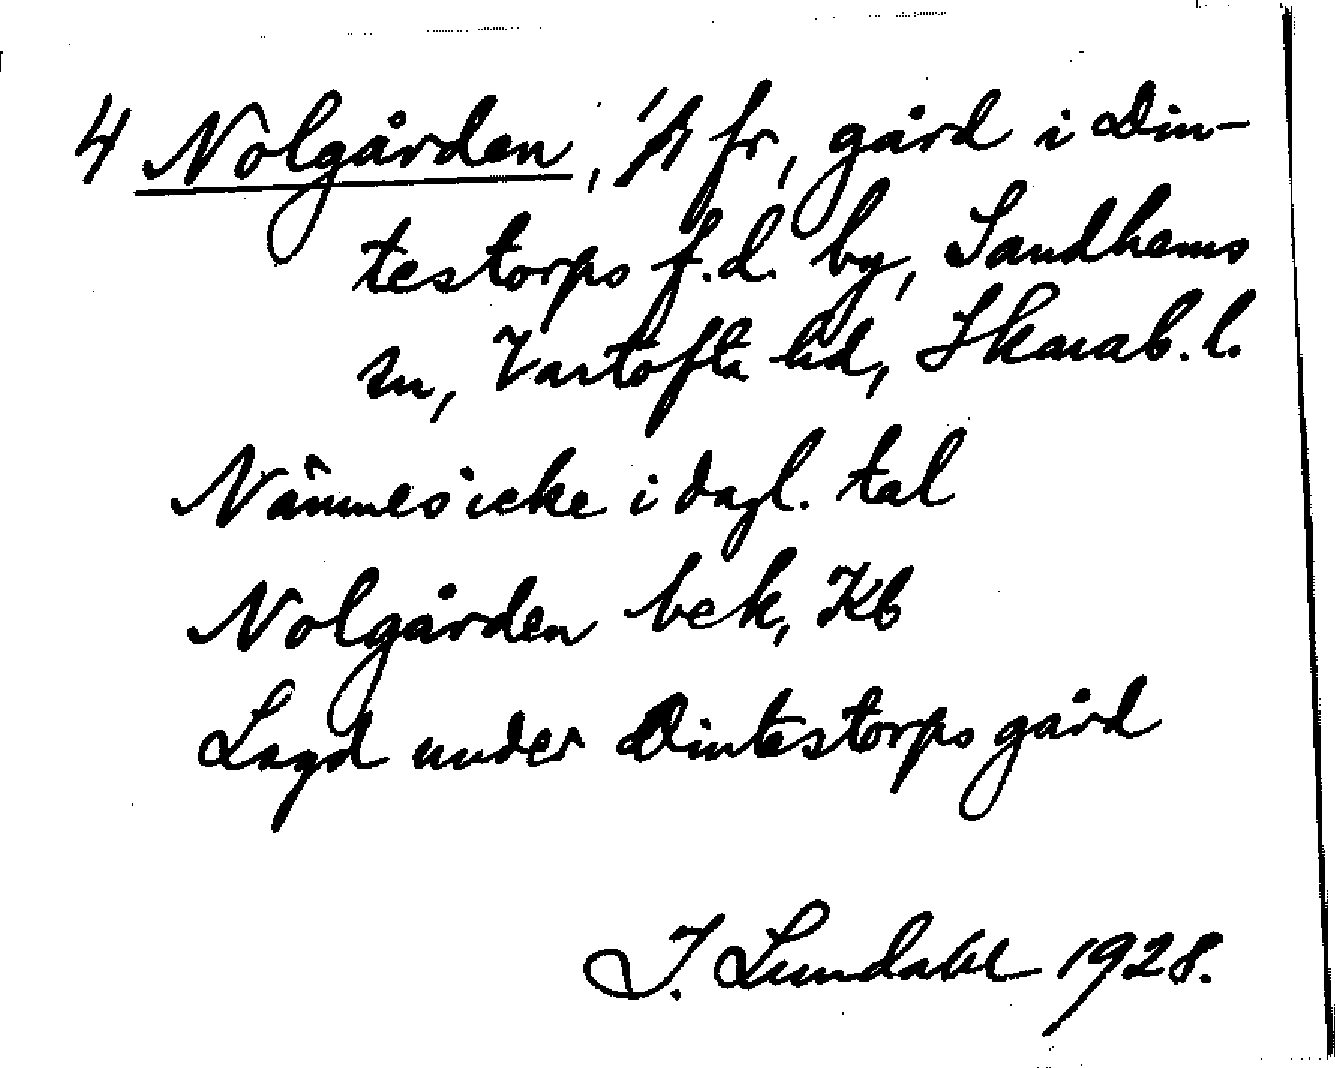 4 Nolgården, 1/4 fr, gård i Din-
testorps f.d. by, Sandhems
sn, Vartofta hd, Skarab. l.
Nämnes icke i dagl. tal
Nolgården bek, Kb
Lagd under Dintestorps gård
I. Lundahl 1928.